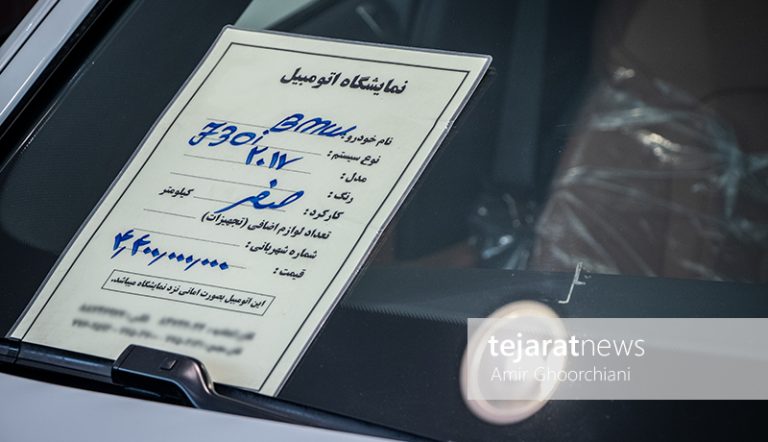 نمایشگاه اتومبیل
نام خودرو: BMW
نوع سیستم: 730i
مدل: ۲۰۱۷
رنگ:
کارکرد: صفر کیلومتر
تعداد لوازم اضافی (تجهیزات)
شماره شهربانی:
قیمت: ۴,۴۰۰,۰۰۰,۰۰۰
این اتومبیل بصورت امانی نزد نمایشگاه میباشد.
tejaratnews
Amir Ghoorchiani